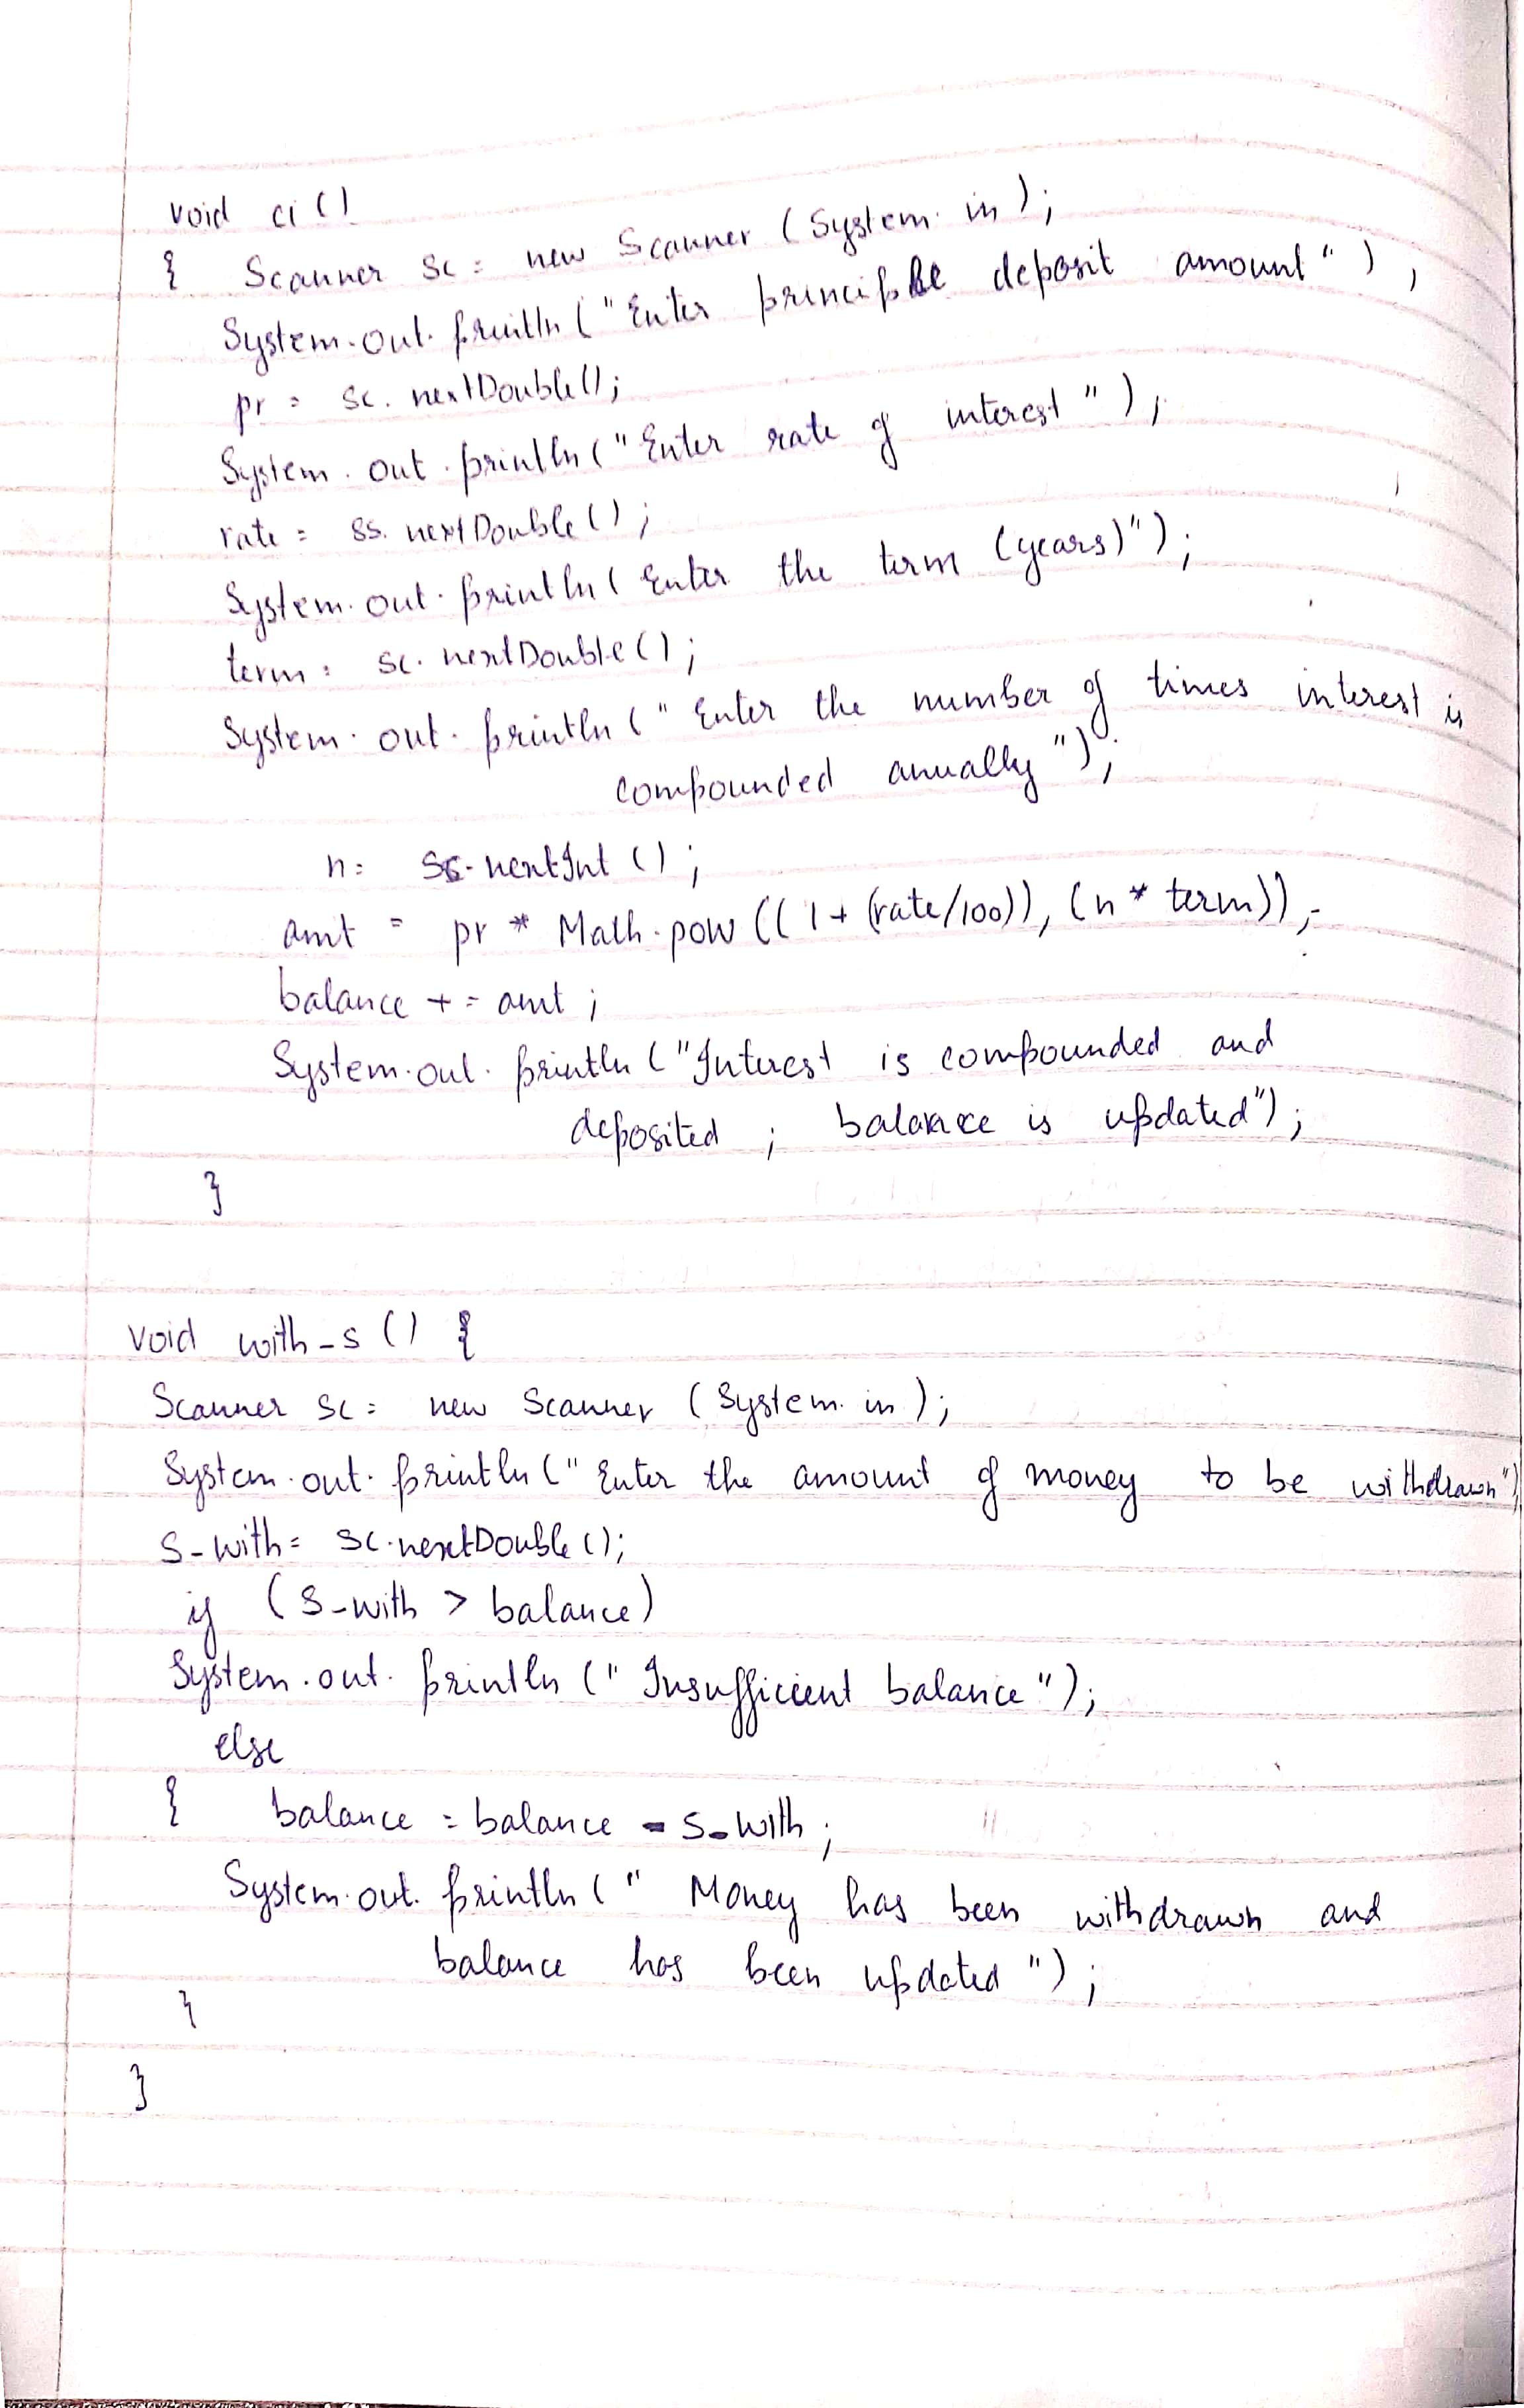 void ci ()
{ Scanner sc = new Scanner (System.in);
System.out.println ("Enter principle deposit amount");
pr = sc.nextDouble();
System.out.println ("Enter rate of interest");
rate = ss.nextDouble();
System.out.println ( Enter the term (years)");
term = sc.nextDouble();
System.out.println (" Enter the number of times interest is
compounded anually");
n = ss.nextInt ();
amt = pr * Math.pow ((1 + (rate/100)), (n * term));
balance += amt;
System.out.println ("Interest is compounded and
deposited ; balance is updated");
}
void with_s () {
Scanner sc = new Scanner (System.in);
System.out.println (" Enter the amount of money to be withdrawn")
s_with = sc.nextDouble();
if (s_with > balance)
System.out.println (" Insufficient balance");
else
{ balance = balance - s_with;
System.out.println (" Money has been withdrawn and
balance has been updated ");
}
}